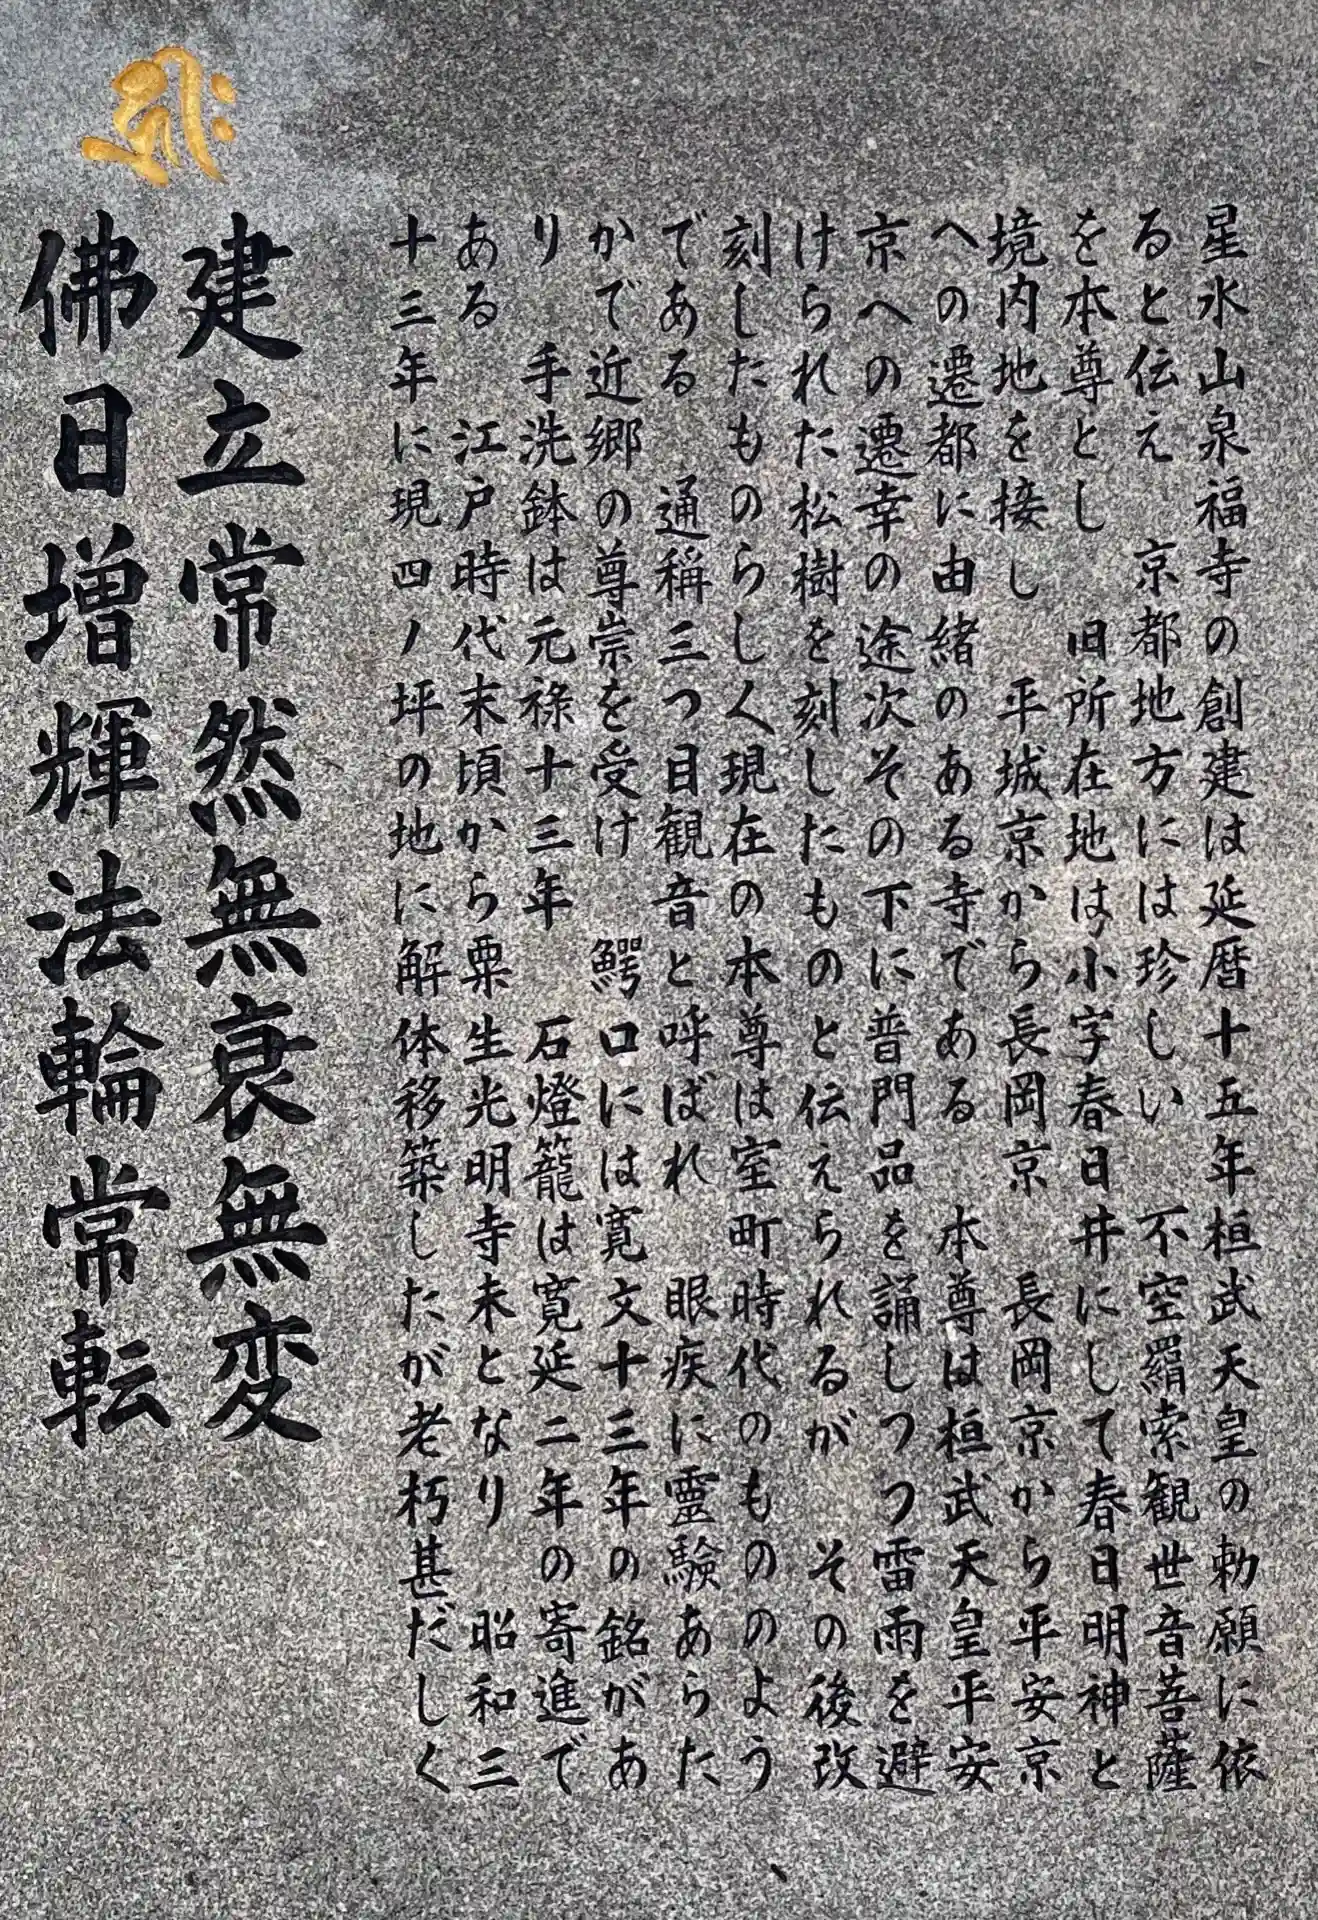 星水山泉福寺の創建は延暦十五年桓武天皇の勅願に依
ると伝え　京都地方には珍しい　不空羂索観世音菩薩
を本尊とし　旧所在地は小字春日井にして春日明神と
境内地を接し　平城京から長岡京　長岡京から平安京
への遷都に由緒のある寺である　本尊は桓武天皇平安
京への遷幸の途次その下に普門品を誦しつつ雷雨を避
けられた松樹を刻したものと伝えられるが　その後改
刻したものらしく現在の本尊は室町時代のもののよう
である　通稱三つ目観音と呼ばれ　眼疾に霊験あらた
かで近郷の尊崇を受け　鰐口には寛文十三年の銘があ
り　手洗鉢は元禄十三年　石燈籠は寛延二年の寄進で
ある　江戸時代末頃から粟生光明寺末となり　昭和三
十三年に現四ノ坪の地に解体移築したが老朽甚だしく
建立常然無衰無変
佛日増輝法輪常転